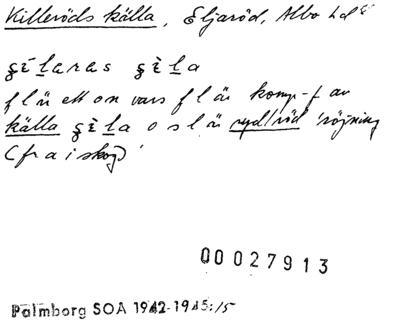 Killeröds källa, Eljaröd, Albo hd
çèlaras çèla
f l är ett on vars f l är komp-f av
källa çèla o s l är ryd/röd 'röjning
(fr a i skog)'
00027913
Palmborg SOA 1942-1945:15